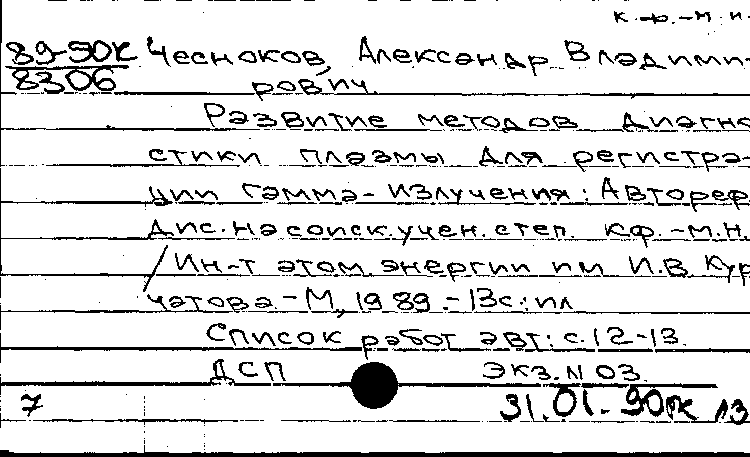 к.ф.-м.н.
89-90к Чесноков, Александр Владими-
8306 рович.
Развитие методов диагно
стики плазмы для регистра-
ции гамма-излучения: Автореф
дис. на соиск. учен. степ. к.ф.-м.н.
/Ин-т атом. энергии им И.В. Кур
чатова-М, 1989.-13с.: ил
Список работ авт: с.12-13.
ДСП экз. N 03.
7 31.01.90